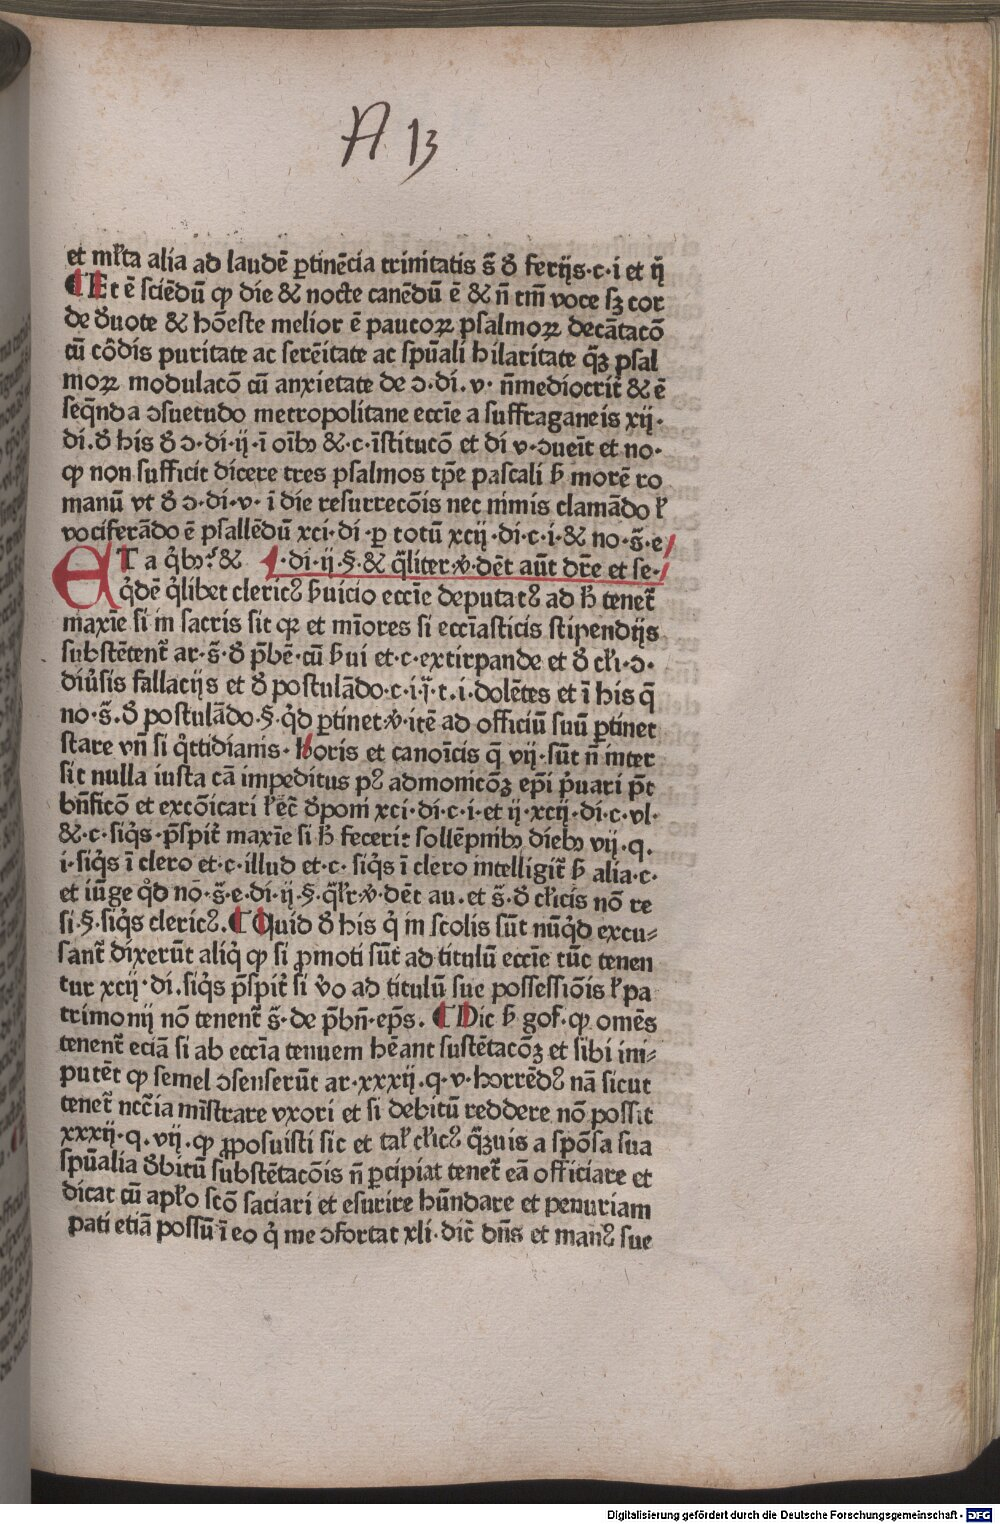 A 13
et mł'ta alia ad laudē ꝑtinēcia trinitatis s̄ ꝺ̄ ferijs·c·i et ij
¶ Et ē sciēdū ꝙ die & nocte canēdū ē & n̄ tm̄ voce sꝫ cor
de ꝺ̄uote & hōeste melior ē paucoꝝ psalmoꝝ decātacō
cū cōdis puritate ac serēitate ac spūali hilaritate q̄ꝫ psal
moꝝ modulacō cū anxietate de ɔ·di·v· n̄mediocrit̄ & ē
seq̄nda ɔsuetudo metropolitane eccīe a suffraganeis xij·
di·ꝺ̄ his ꝺ̄ ɔ·di·ij·ī oīb9 &·c·īstitucō et di v·ɔueīt et no·
ꝙ non sufficit dicere tres psalmos tp̄e pascali ẜm morē ro
manū vt ꝺ̄ ɔ·di·v· ī die resurrecōis nec nimis clamādo ł'
vociferādo ē psallēdū xci·di·ꝑ totū xcij·di·c·i·& no·s̄·e
ET a q̇b9· & ·di·ij·§·& q̄liter·v̇·dēt aūt dr̄e et se·
q̇dē q̇libet cleric9 ẜuicio eccīe deputat9 ad h̄ tenet̄
maxīe si in sacris sit qꝛ et mīores si eccīasticis stipendijs
substētent̄ ar·s̄·ꝺ̄ p̄bē·cū ẜui et·c·extirpande et ꝺ̄ cłi·ɔ·
diu̇sis fallacijs et ꝺ̄ postulādo·c·i·j̄·t·i·dolētes et ī his q̄
no·s̄·ꝺ̄ postulādo·§·q̇d ꝑtinet·v̇·itē ad officiū suū ꝑtinet
stare vn̄ si q̇ttidianis· horis et canoīcis q̄ vij·sūt n̄ inter
sit nulla iusta cā impeditus p9 admonicōꝫ ep̄i p̄uari p̄t
bn̄ficō et excōicari ł'ec̄ ꝺ̄poni xci·di·c·i·et ij·xcij·di·c·vl·
&·c·siq̇s·p̄spit̄ maxīe si h̄ fecerit sollēpnib9 dieb9 vij·q·
i·siq̇s ī clero et·c·illud et·c· siq̇s ī clero intelligit̄ ẜm alia·c·
et iūge q̇d no·s̄·e·di·ij·§·q̄lr·v̇·dēt au·et s̄·ꝺ̄ cłicis nō re
si·§·siq̇s cleric9.¶ Quid ꝺ̄ his q̇ in scolis sūt nūq̇d excu⸗
sant̄ dixerūt aliq̇ ꝙ si ꝓmoti sūt ad titulū eccīe tūc tenen
tur xcij·di·siq̇s p̄spit̄ si v̇o ad titulū sue possessiōis ł'pa
trimonij nō tenent̄ s̄·de p̄bn̄·ep̄s. ¶ Dic ẜm gof·ꝙ omēs
tenent̄ eciā si ab eccīa tenuem hēant sustētacōꝫ et sibi im⸗
putēt ꝙ semel ɔsenserūt ar·xxxij·q·v·horrēd9 nā sicut
tenet̄ nccīa mīstrare vxori et si debitū reddere nō possit
xxxij·q·vij·ꝙ ꝓposuisti sic et tał cłic9 q̄ꝫuis a spōsa sua
spūalia ꝺ̄bitū substētacōis n̄ ꝑcipiat tenet̄ eā officiare et
dicat cū apło scō saciari et esurire hūndare et penuriam
pati etiā possū ī eo q̇ me ɔfortat xli·dic̄ dn̄s et man9 sue
Digitalisierung gefördert durch die Deutsche Forschungsgemeinschaft - DFG